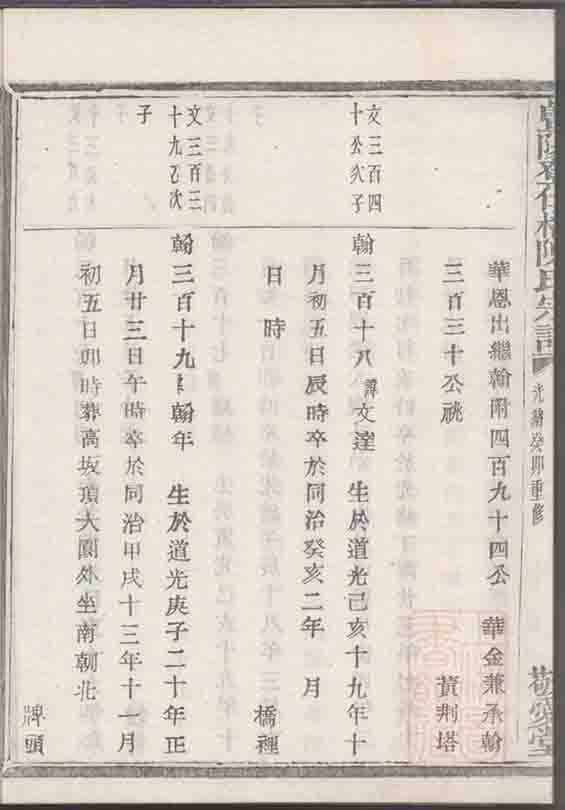 陳氏宗譜
光緒癸卯重修
敬愛堂
華恩出繼翰附四百九十四公 華金兼承翰
三百三十公祧 黃荆塔
文三百四
十公次子
翰三百十八 諱文達 生於道光己亥十九年十
月初五日辰時卒於同治癸亥二年 月
日 時 橋裡
文三百三
十九公次
子
翰三百十九 翰年 生於道光庚子二十年正
月廿三日午時卒於同治甲戌十三年十一月
初五日卯時葬高坂頂大園外坐南朝北
牌頭